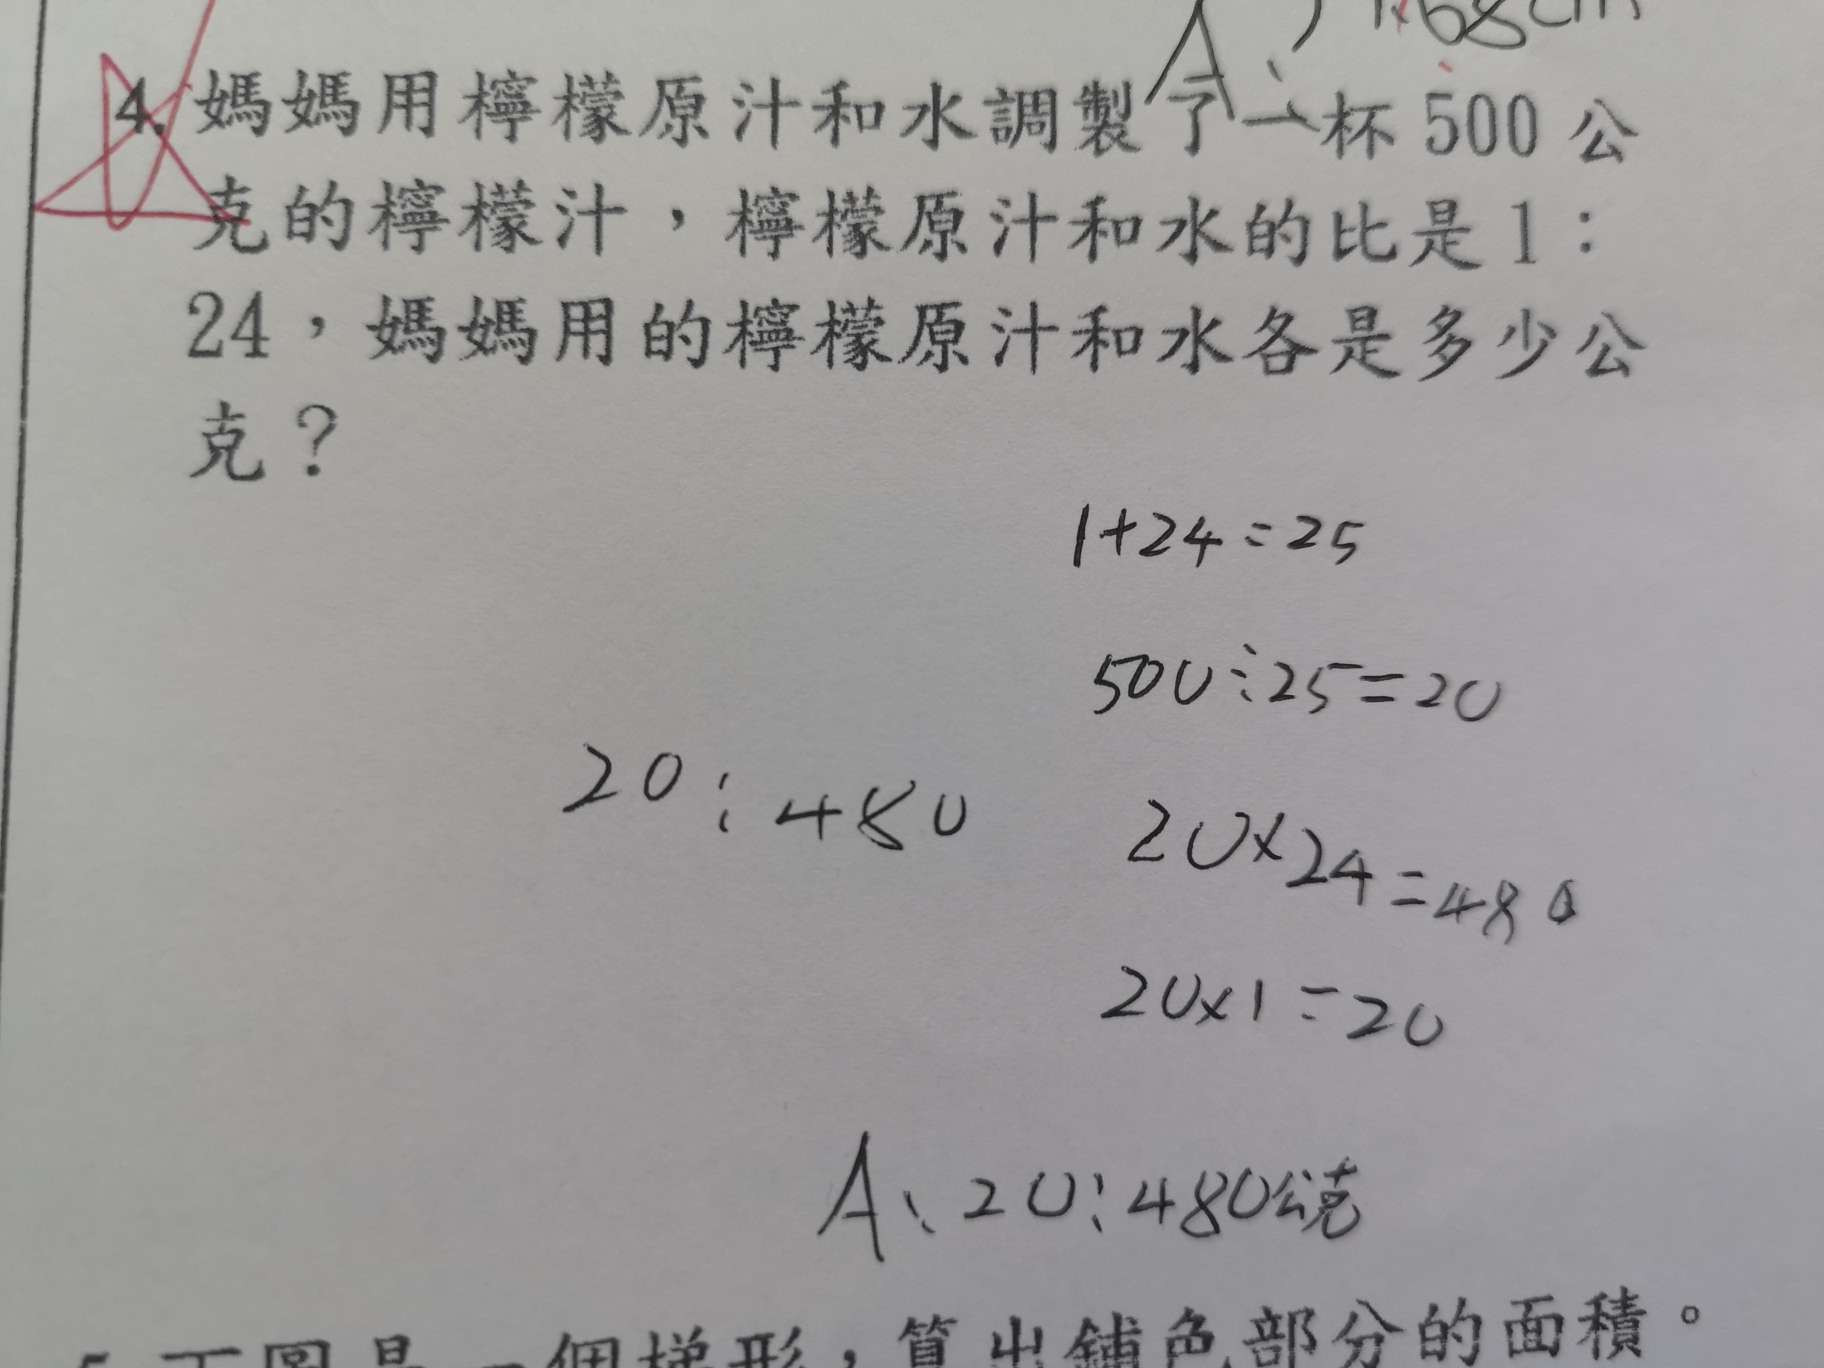 68cm
A、
4. 媽媽用檸檬原汁和水調製了一杯 500 公
克的檸檬汁，檸檬原汁和水的比是 1：
24，媽媽用的檸檬原汁和水各是多少公
克？
1+24=25
500÷25=20
20：480
20×24=480
20×1=20
A、20：480公克
5. 下圖是一個梯形，算出鋪色部分的面積。